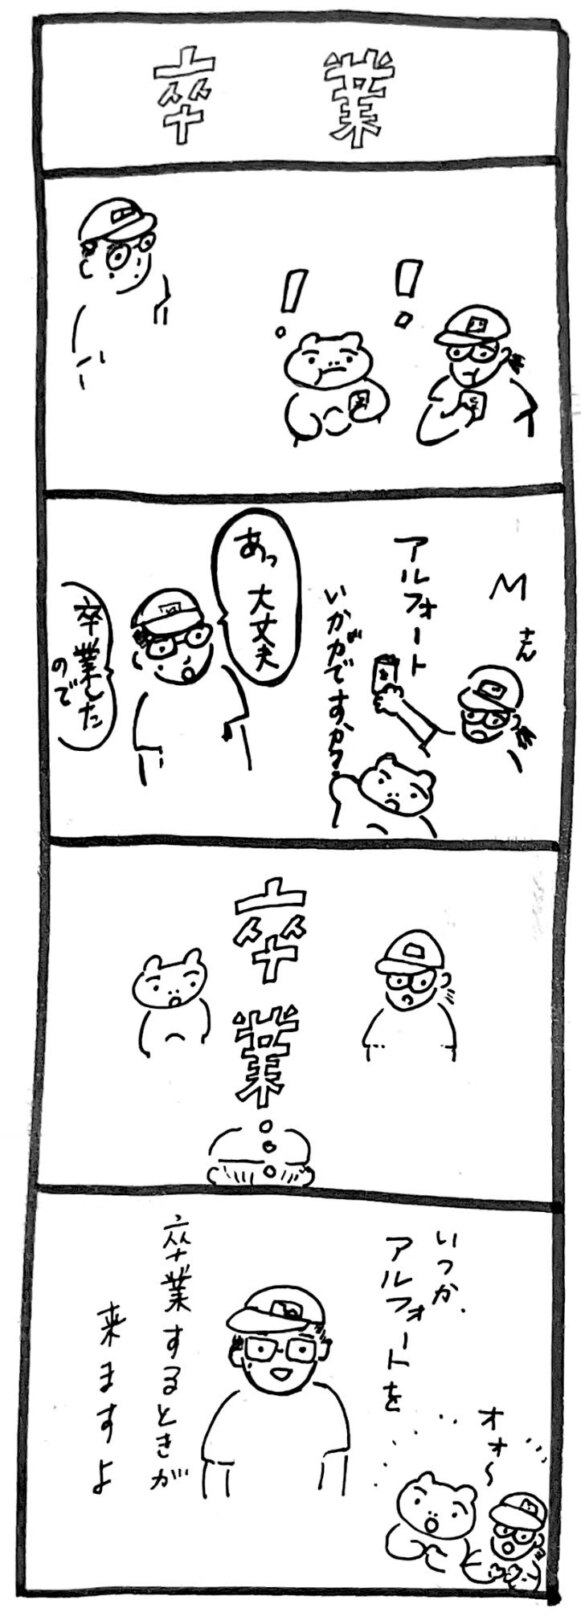 卒業
！
！
Mさん
アルフォート
いかがですか？
あっ大丈夫
卒業した
ので
卒業
いつか、
アルフォートを
卒業するときが
来ますよ
オォ〜